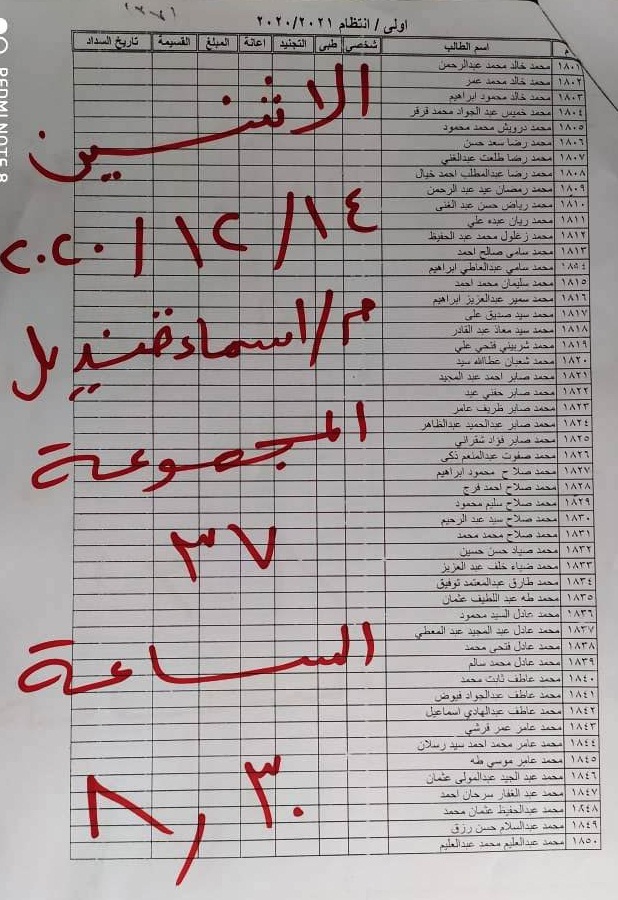 اولى / انتظام ٢٠٢٠/٢٠٢١
م اسم الطالب شخصي طبى التجنيد اعانة المبلغ القسيمة تاريخ السداد
١٨٠١ محمد خالد محمد عبدالرحمن
١٨٠٢ محمد خالد محمد عمر
١٨٠٣ محمد خالد محمود ابراهيم
١٨٠٤ محمد خميس عبد الجواد محمد قرقر
١٨٠٥ محمد درويش محمد محمود
١٨٠٦ محمد رضا سعد حسن
١٨٠٧ محمد رضا طلعت عبدالغني
١٨٠٨ محمد رضا عبدالمطلب احمد خيال
١٨٠٩ محمد رمضان عيد عبد الرحمن
١٨١٠ محمد رياض حسن عبد الغنى
١٨١١ محمد ريان عبده علي
١٨١٢ محمد زغلول محمد عبد الحفيظ
١٨١٣ محمد سامى صالح احمد
١٨١٤ محمد سامي عبدالعاطي ابراهيم
١٨١٥ محمد سليمان محمد احمد
١٨١٦ محمد سمير عبدالعزيز ابراهيم
١٨١٧ محمد سيد صديق على
١٨١٨ محمد سيد معاذ عبد القادر
١٨١٩ محمد شربيني فتحي علي
١٨٢٠ محمد شعبان عطاالله سيد
١٨٢١ محمد صابر احمد عبد المجيد
١٨٢٢ محمد صابر حفني عيد
١٨٢٣ محمد صابر ظريف عامر
١٨٢٤ محمد صابر عبدالحميد عبدالظاهر
١٨٢٥ محمد صابر فؤاد شقرانى
١٨٢٦ محمد صفوت عبدالمنعم ذكى
١٨٢٧ محمد صلاح محمود ابراهيم
١٨٢٨ محمد صلاح احمد فرج
١٨٢٩ محمد صلاح سليم محمود
١٨٣٠ محمد صلاح سيد عبد الرحيم
١٨٣١ محمد صلاح محمد محمد
١٨٣٢ محمد صياد حسن حسين
١٨٣٣ محمد ضياء خلف عبد العزيز
١٨٣٤ محمد طارق عبدالمعتمد توفيق
١٨٣٥ محمد طه عبد اللطيف عثمان
١٨٣٦ محمد عادل السيد محمود
١٨٣٧ محمد عادل عبد المجيد عبد المعطي
١٨٣٨ محمد عادل فتحى محمد
١٨٣٩ محمد عادل محمد سالم
١٨٤٠ محمد عاطف ثابت محمد
١٨٤١ محمد عاطف عبدالجواد فيوض
١٨٤٢ محمد عاطف عبدالهادي اسماعيل
١٨٤٣ محمد عامر عمر قرشي
١٨٤٤ محمد عامر محمد احمد سيد رسلان
١٨٤٥ محمد عامر موسي طه
١٨٤٦ محمد عبد الجيد عبدالمولى عثمان
١٨٤٧ محمد عبد الغفار سرحان احمد
١٨٤٨ محمد عبدالحفيظ عثمان محمد
١٨٤٩ محمد عبدالسلام حسن رزق
١٨٥٠ محمد عبدالعليم محمد عبدالعليم
الاثنين
١٤/١٢/٢٠٢٠
م/اسماء قنديل
المجموعة
٣٧
الساعة
٨,٣٠
REDMI NOTE 8